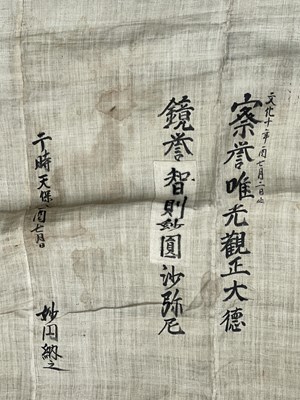 文化十年酉七月二日
察誉唯光觀正大德
鏡誉智則妙圓沙弥尼
于時天保酉七月日
妙円納之